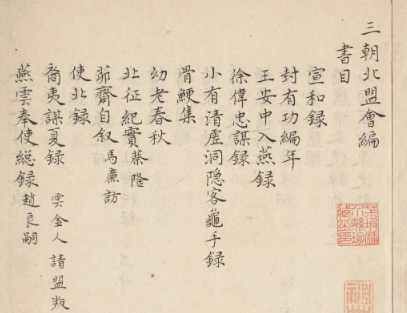 三朝北盟會編
書目
宣和録
封有功編年
王安中入燕録
徐偉忠謀録
小有清虛洞隐客龜手録
骨鯁集
幼老春秋
北征紀實蔡絛
茆齋自叙馬廉訪
使北録
裔夷謀夏録 雲金人請盟叛
燕雲奉使緫録趙良嗣